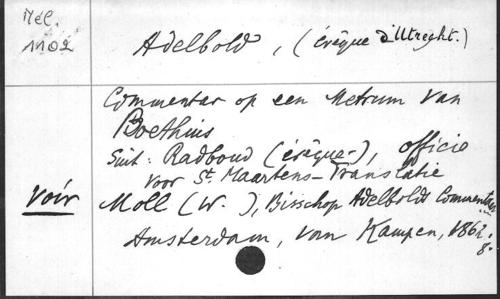 Mél.
1102
Adelbold, (évêque d'Utrecht.)
Commentar op een Metrum van
Boethius
Suit: Radboud (évêque-), officie
voor St. Maartens-Translatie
voir Moll (W.), Bisschop Adelbolds Commentar.
Amsterdam, van Kampen, 1862.
8.